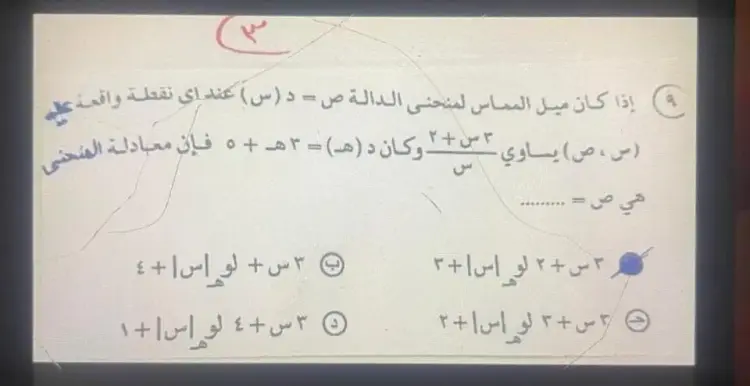 ٣
٩ إذا كان ميل المماس لمنحنى الدالة ص = د (س) عند اي نقطة واقعة عليه
(س ، ص) يساوي ٣س+٢/س وكان د (هـ) = ٣هـ + ٥ فإن معادلة المنحنى
هي ص = .........
٣ س + ٢ لو_هـ |س| + ٣
ب ٣ س + لو_هـ |س| + ٤
حـ ٣ س + ٣ لو_هـ |س| + ٢
د ٣ س + ٤ لو_هـ |س| + ١